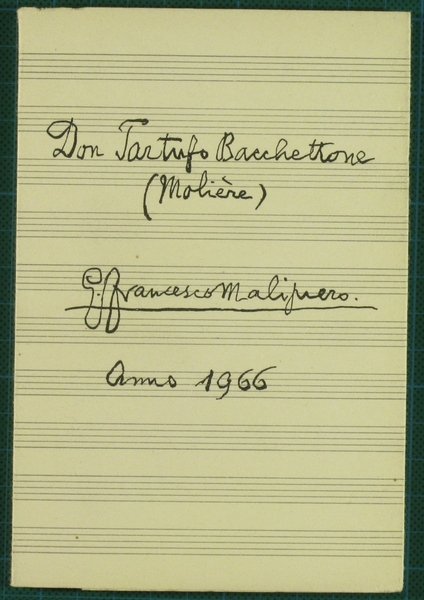 Don Tartufo Bacchettone
(Molière)
G. francesco Malipiero.
Anno 1966